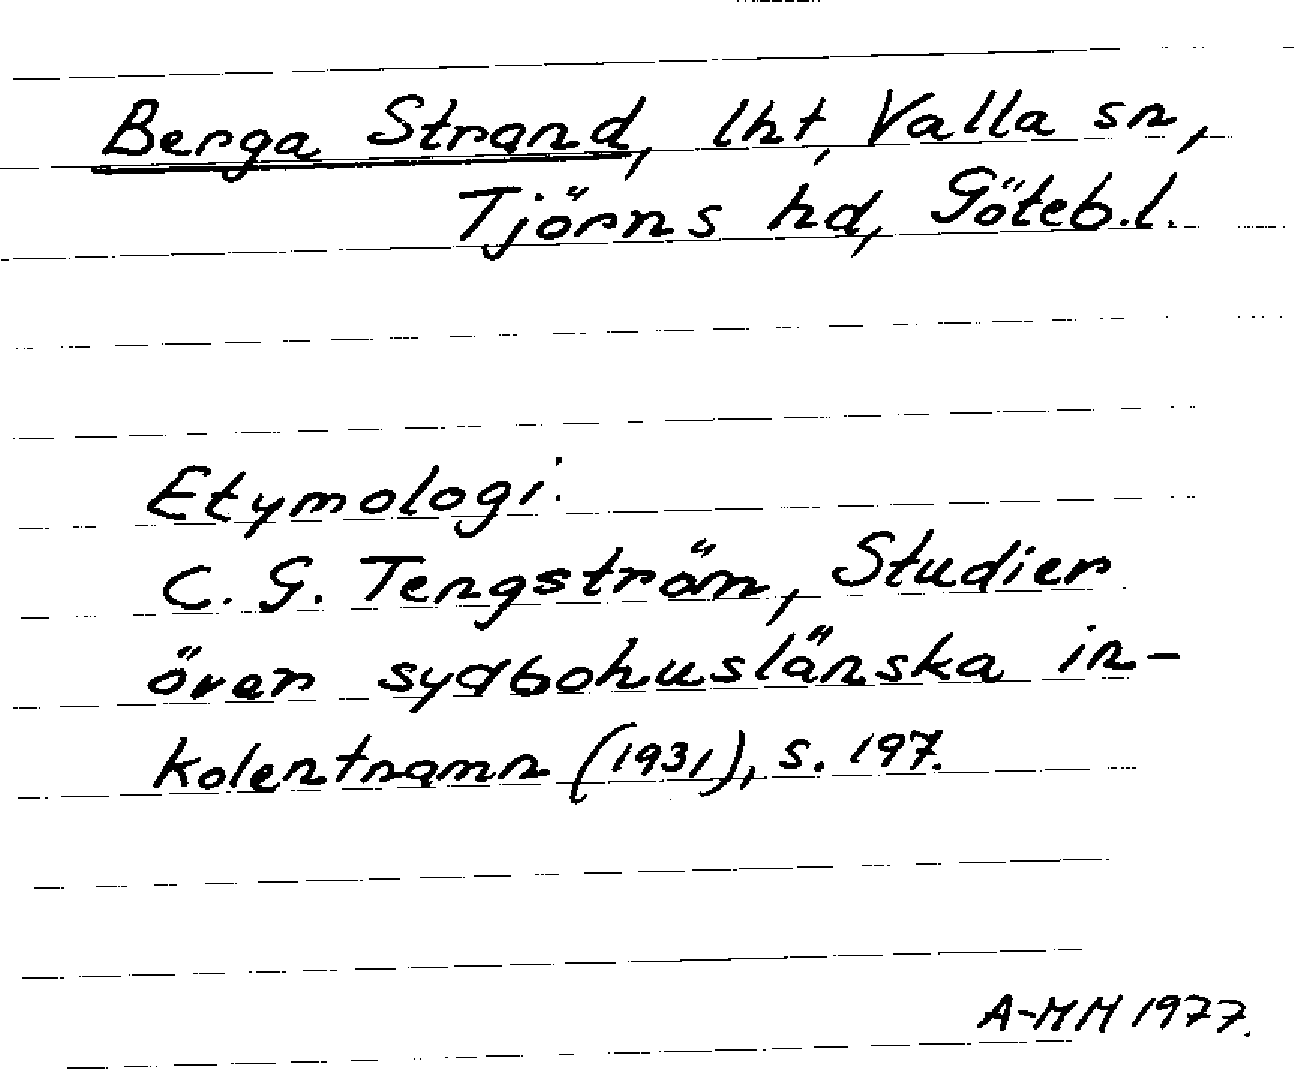 Berga Strand, lht, Valla sn,
Tjörns hd, Göteb.l.
Etymologi:
C. G. Tengström, Studier
över sydbohuslänska in-
kolentnamn (1931), s. 197.
A-MM 1977.